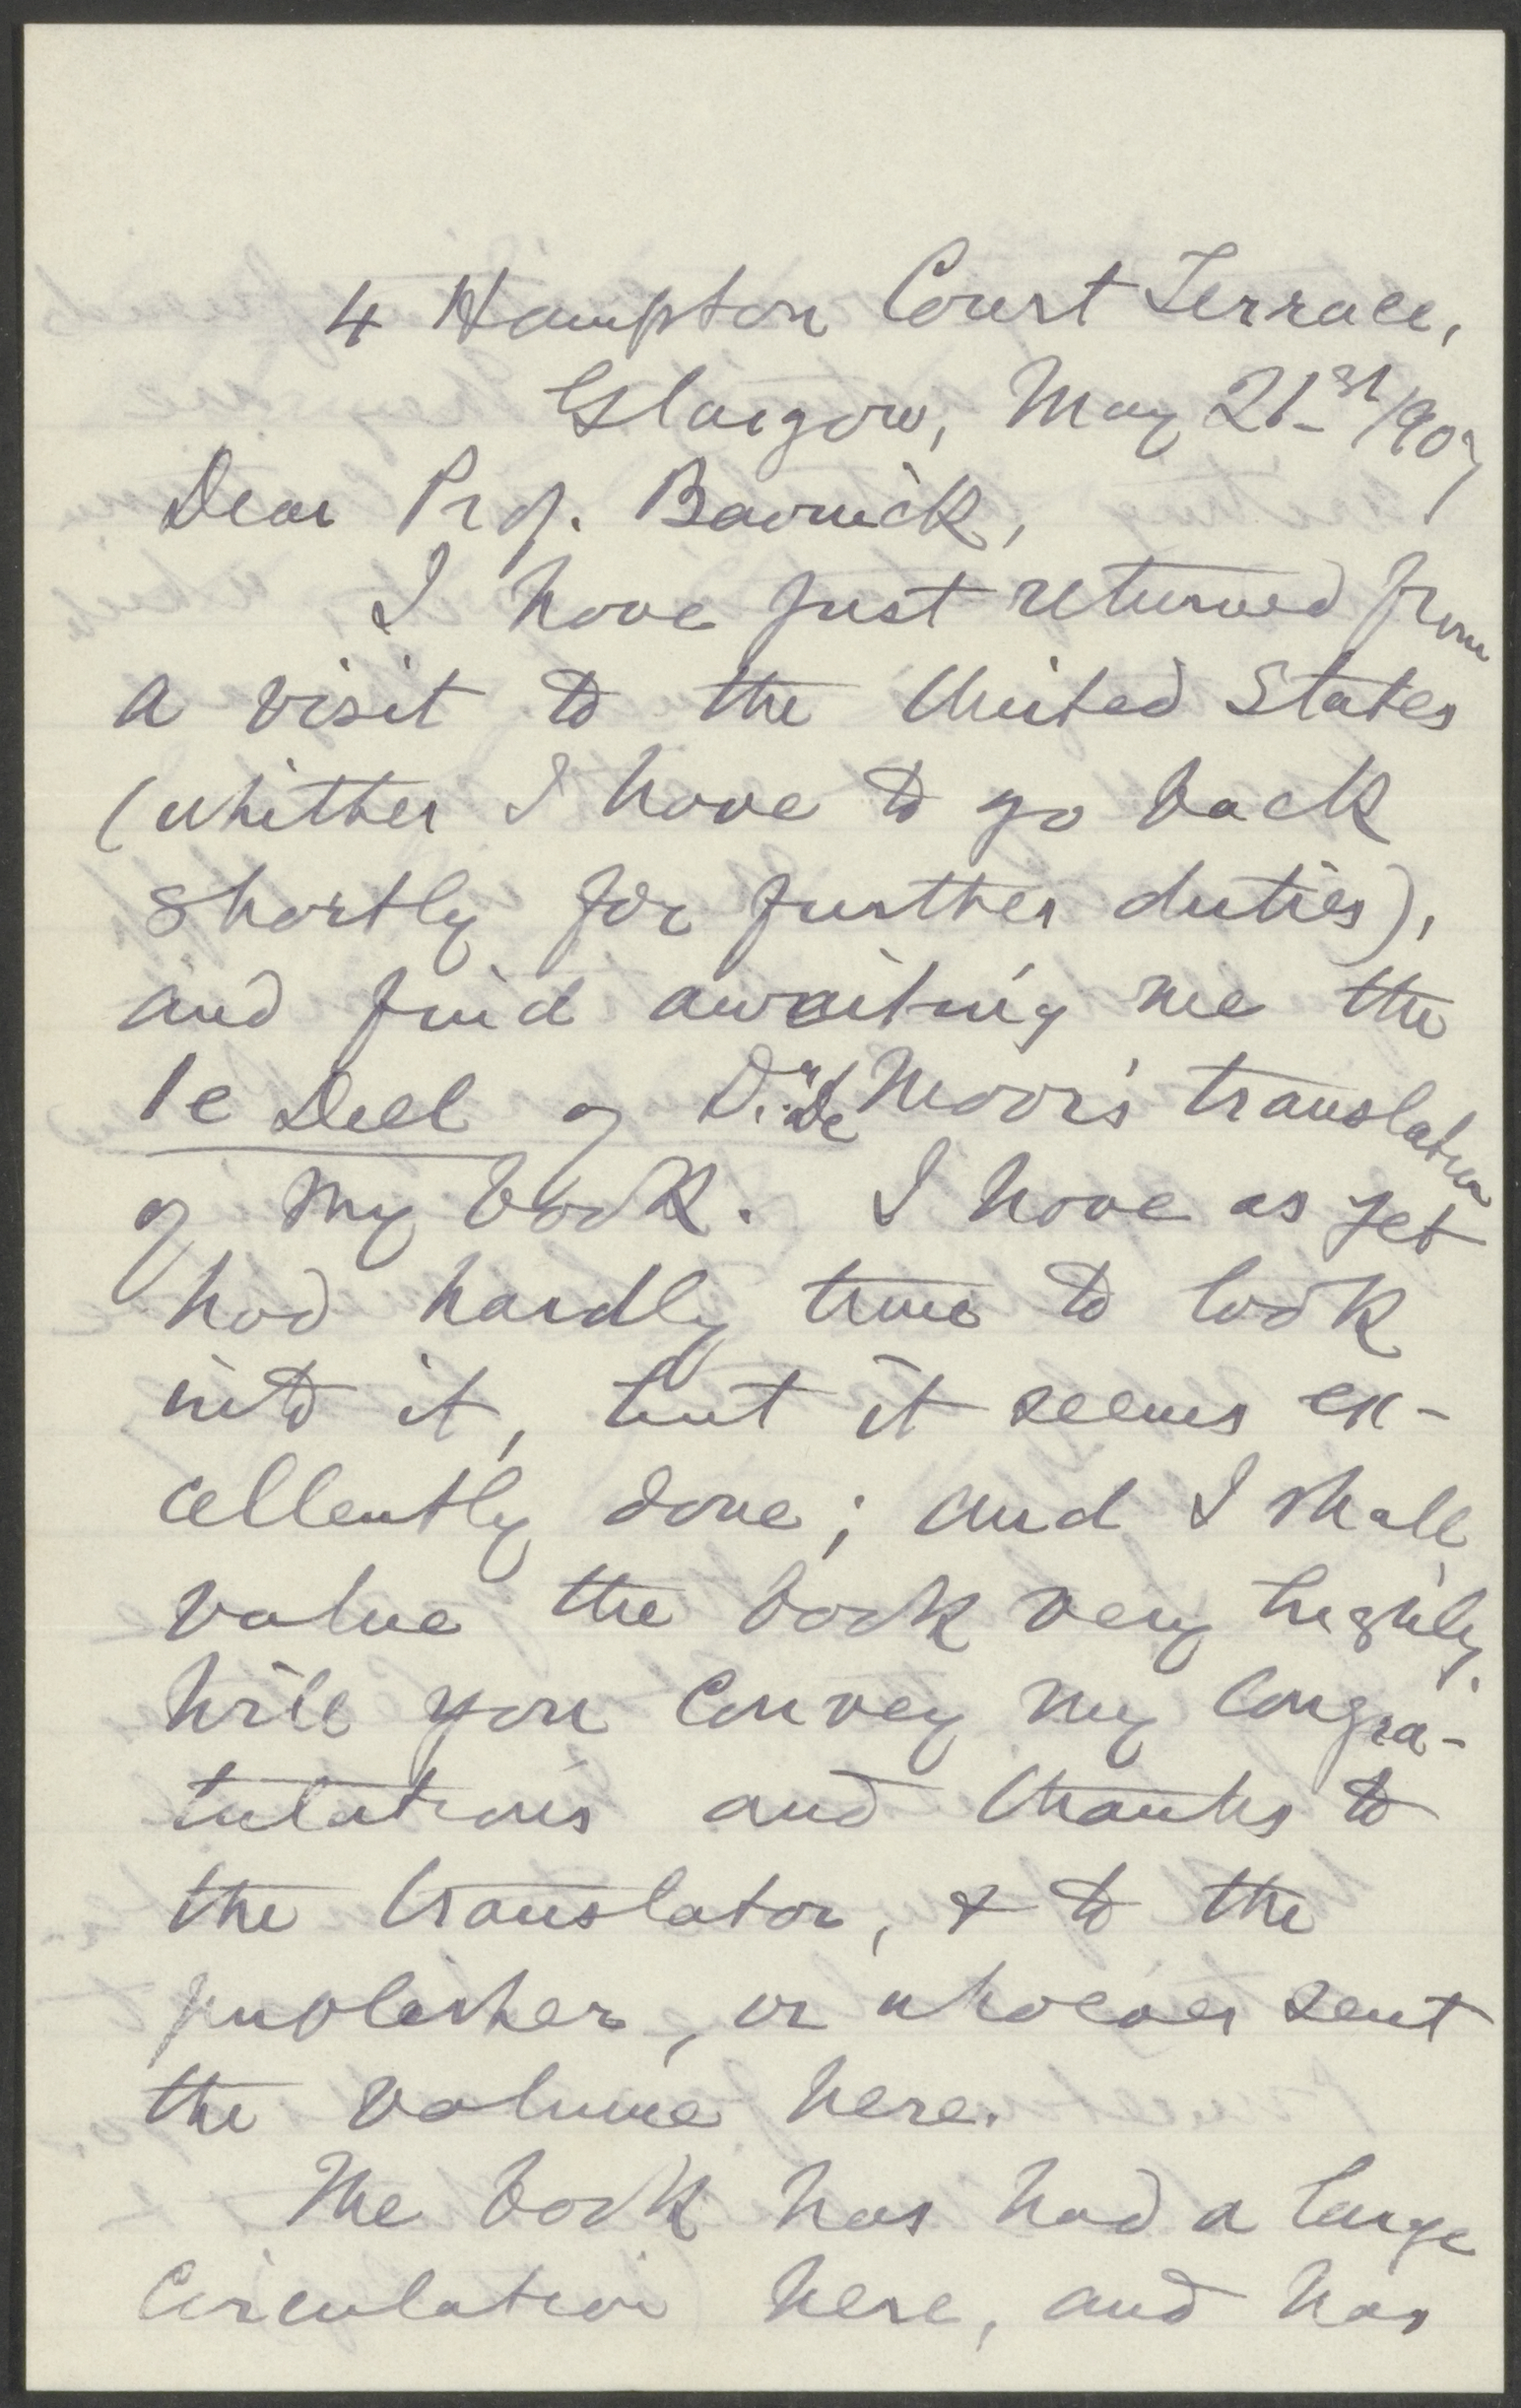 4 Hampton Court Terrace,
Glasgow, May 21st/907
Dear Prof. Bavinck,
I have just returned from
a visit to the United States
(whither I have to go back
shortly for further duties),
and find awaiting me the
1e Deel of Dr. De Moor's translation
of my book. I have as yet
had hardly time to look
into it, but it seems ex-
cellently done; and I shall
value the book very highly.
Will you convey my congra-
tulations and thanks to
the translator, & to the
publisher, or whoever sent
the volume here.
The book has had a large
circulation here, and has